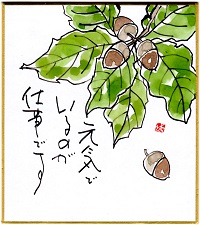 元気で
いるのが
仕事です